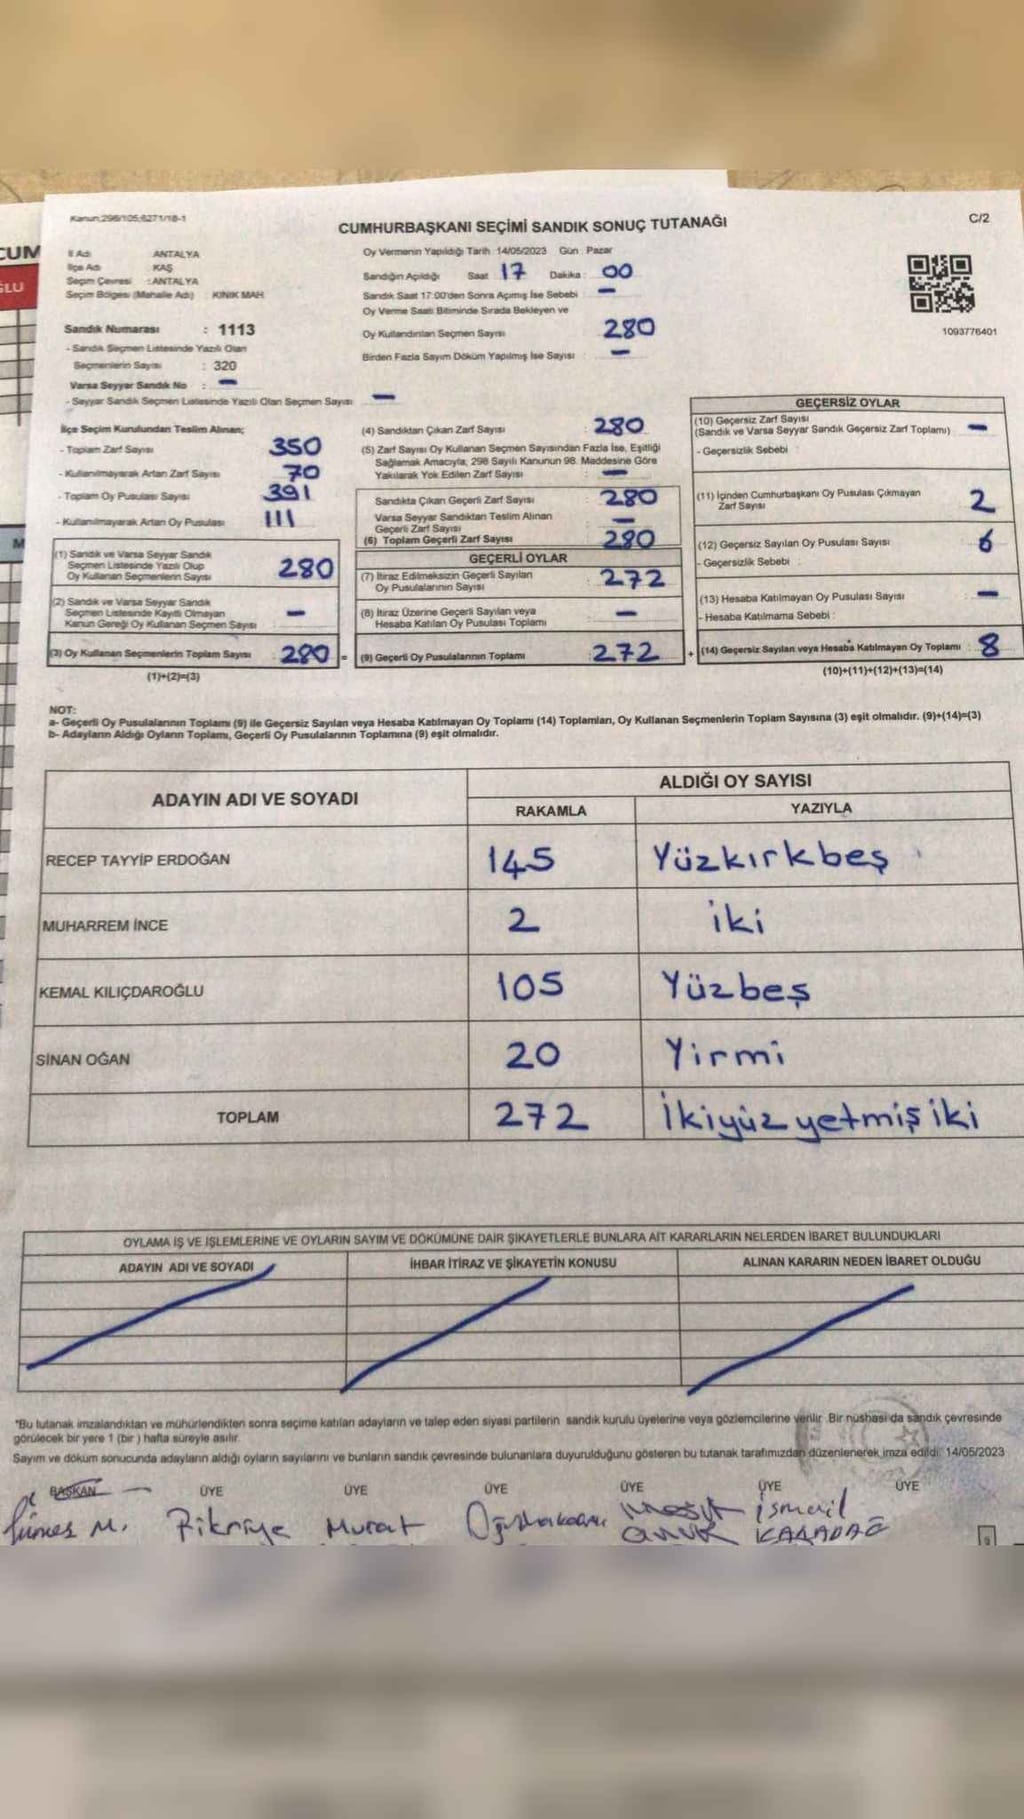 Kanun:298/105;6271/18-1
C/2
CUMHURBAŞKANI SEÇİMİ SANDIK SONUÇ TUTANAĞI
CUM
ĞLU
M
İl Adı ANTALYA
İlçe Adı KAŞ
Seçim Çevresi : ANTALYA
Seçim Bölgesi (Mahalle Adı) : KINIK MAH.
Sandık Numarası : 1113
- Sandık Seçmen Listesinde Yazılı Olan
Seçmenlerin Sayısı : 320
Varsa Seyyar Sandık No : -
- Seyyar Sandık Seçmen Listesinde Yazılı Olan Seçmen Sayısı -
Oy Vermenin Yapıldığı Tarih 14/05/2023 Gün Pazar
Sandığın Açıldığı Saat 17 Dakika : 00
Sandık Saat 17:00'den Sonra Açımış İse Sebebi : -
Oy Verme Saati Bitiminde Sırada Bekleyen ve
Oy Kullandırılan Seçmen Sayısı 280
Birden Fazla Sayım Döküm Yapılmış İse Sayısı : -
1093776401
İlçe Seçim Kurulundan Teslim Alınan;
- Toplam Zarf Sayısı 350
- Kullanılmayarak Artan Zarf Sayısı 70
- Toplam Oy Pusulası Sayısı 391
- Kullanılmayarak Artan Oy Pusulası 111
(1) Sandık ve Varsa Seyyar Sandık
Seçmen Listesinde Yazılı Olup
Oy Kullanan Seçmenlerin Sayısı 280
(2) Sandık ve Varsa Seyyar Sandık
Seçmen Listesinde Kayıtlı Olmayan
Kanun Gereği Oy Kullanan Seçmen Sayısı -
(3) Oy Kullanan Seçmenlerin Toplam Sayısı 280 =
(1)+(2)=(3)
(4) Sandıktan Çıkan Zarf Sayısı : 280
(5) Zarf Sayısı Oy Kullanan Seçmen Sayısından Fazla İse, Eşitliği
Sağlamak Amacıyla, 298 Sayılı Kanunun 98. Maddesine Göre
Yakılarak Yok Edilen Zarf Sayısı : -
Sandıkta Çıkan Geçerli Zarf Sayısı : 280
Varsa Seyyar Sandıktan Teslim Alınan
Geçerli Zarf Sayısı -
(6) Toplam Geçerli Zarf Sayısı 280
GEÇERLİ OYLAR
(7) İtiraz Edilmeksizin Geçerli Sayılan
Oy Pusulalarının Sayısı : 272
(8) İtiraz Üzerine Geçerli Sayılan veya
Hesaba Katılan Oy Pusulası Toplamı -
(9) Geçerli Oy Pusulalarının Toplamı 272 +
GEÇERSİZ OYLAR
(10) Geçersiz Zarf Sayısı
(Sandık ve Varsa Seyyar Sandık Geçersiz Zarf Toplamı) -
- Geçersizlik Sebebi
(11) İçinden Cumhurbaşkanı Oy Pusulası Çıkmayan
Zarf Sayısı 2
(12) Geçersiz Sayılan Oy Pusulası Sayısı 6
- Geçersizlik Sebebi :
(13) Hesaba Katılmayan Oy Pusulası Sayısı -
- Hesaba Katılmama Sebebi :
(14) Geçersiz Sayılan veya Hesaba Katılmayan Oy Toplamı : 8
(10)+(11)+(12)+(13)=(14)
NOT:
a- Geçerli Oy Pusulalarının Toplamı (9) ile Geçersiz Sayılan veya Hesaba Katılmayan Oy Toplamı (14) Toplamları, Oy Kullanan Seçmenlerin Toplam Sayısına (3) eşit olmalıdır. (9)+(14)=(3)
b- Adayların Aldığı Oyların Toplamı, Geçerli Oy Pusulalarının Toplamına (9) eşit olmalıdır.
ADAYIN ADI VE SOYADI
ALDIĞI OY SAYISI
RAKAMLA YAZIYLA
RECEP TAYYİP ERDOĞAN 145 Yüzkırkbeş
MUHARREM İNCE 2 iki
KEMAL KILIÇDAROĞLU 105 Yüzbeş
SİNAN OĞAN 20 Yirmi
TOPLAM 272 İkiyüz yetmiş iki
OYLAMA İŞ VE İŞLEMLERİNE VE OYLARIN SAYIM VE DÖKÜMÜNE DAİR ŞİKAYETLERLE BUNLARA AİT KARARLARIN NELERDEN İBARET BULUNDUKLARI
ADAYIN ADI VE SOYADI İHBAR İTİRAZ VE ŞİKAYETİN KONUSU ALINAN KARARIN NEDEN İBARET OLDUĞU
*Bu tutanak imzalandıktan ve mühürlendikten sonra seçime katılan adayların ve talep eden siyasi partilerin sandık kurulu üyelerine veya gözlemcilerine verilir. Bir nüshası da sandık çevresinde
görülecek bir yere 1 (bir) hafta süreyle asılır.
Sayım ve döküm sonucunda adayların aldığı oyların sayılarını ve bunların sandık çevresinde bulunanlara duyurulduğunu gösteren bu tutanak tarafımızdan düzenlenerek imza edildi. 14/05/2023
BAŞKAN ÜYE ÜYE ÜYE ÜYE ÜYE ÜYE
M. Fikriye Murat İsmail
KARADAĞ